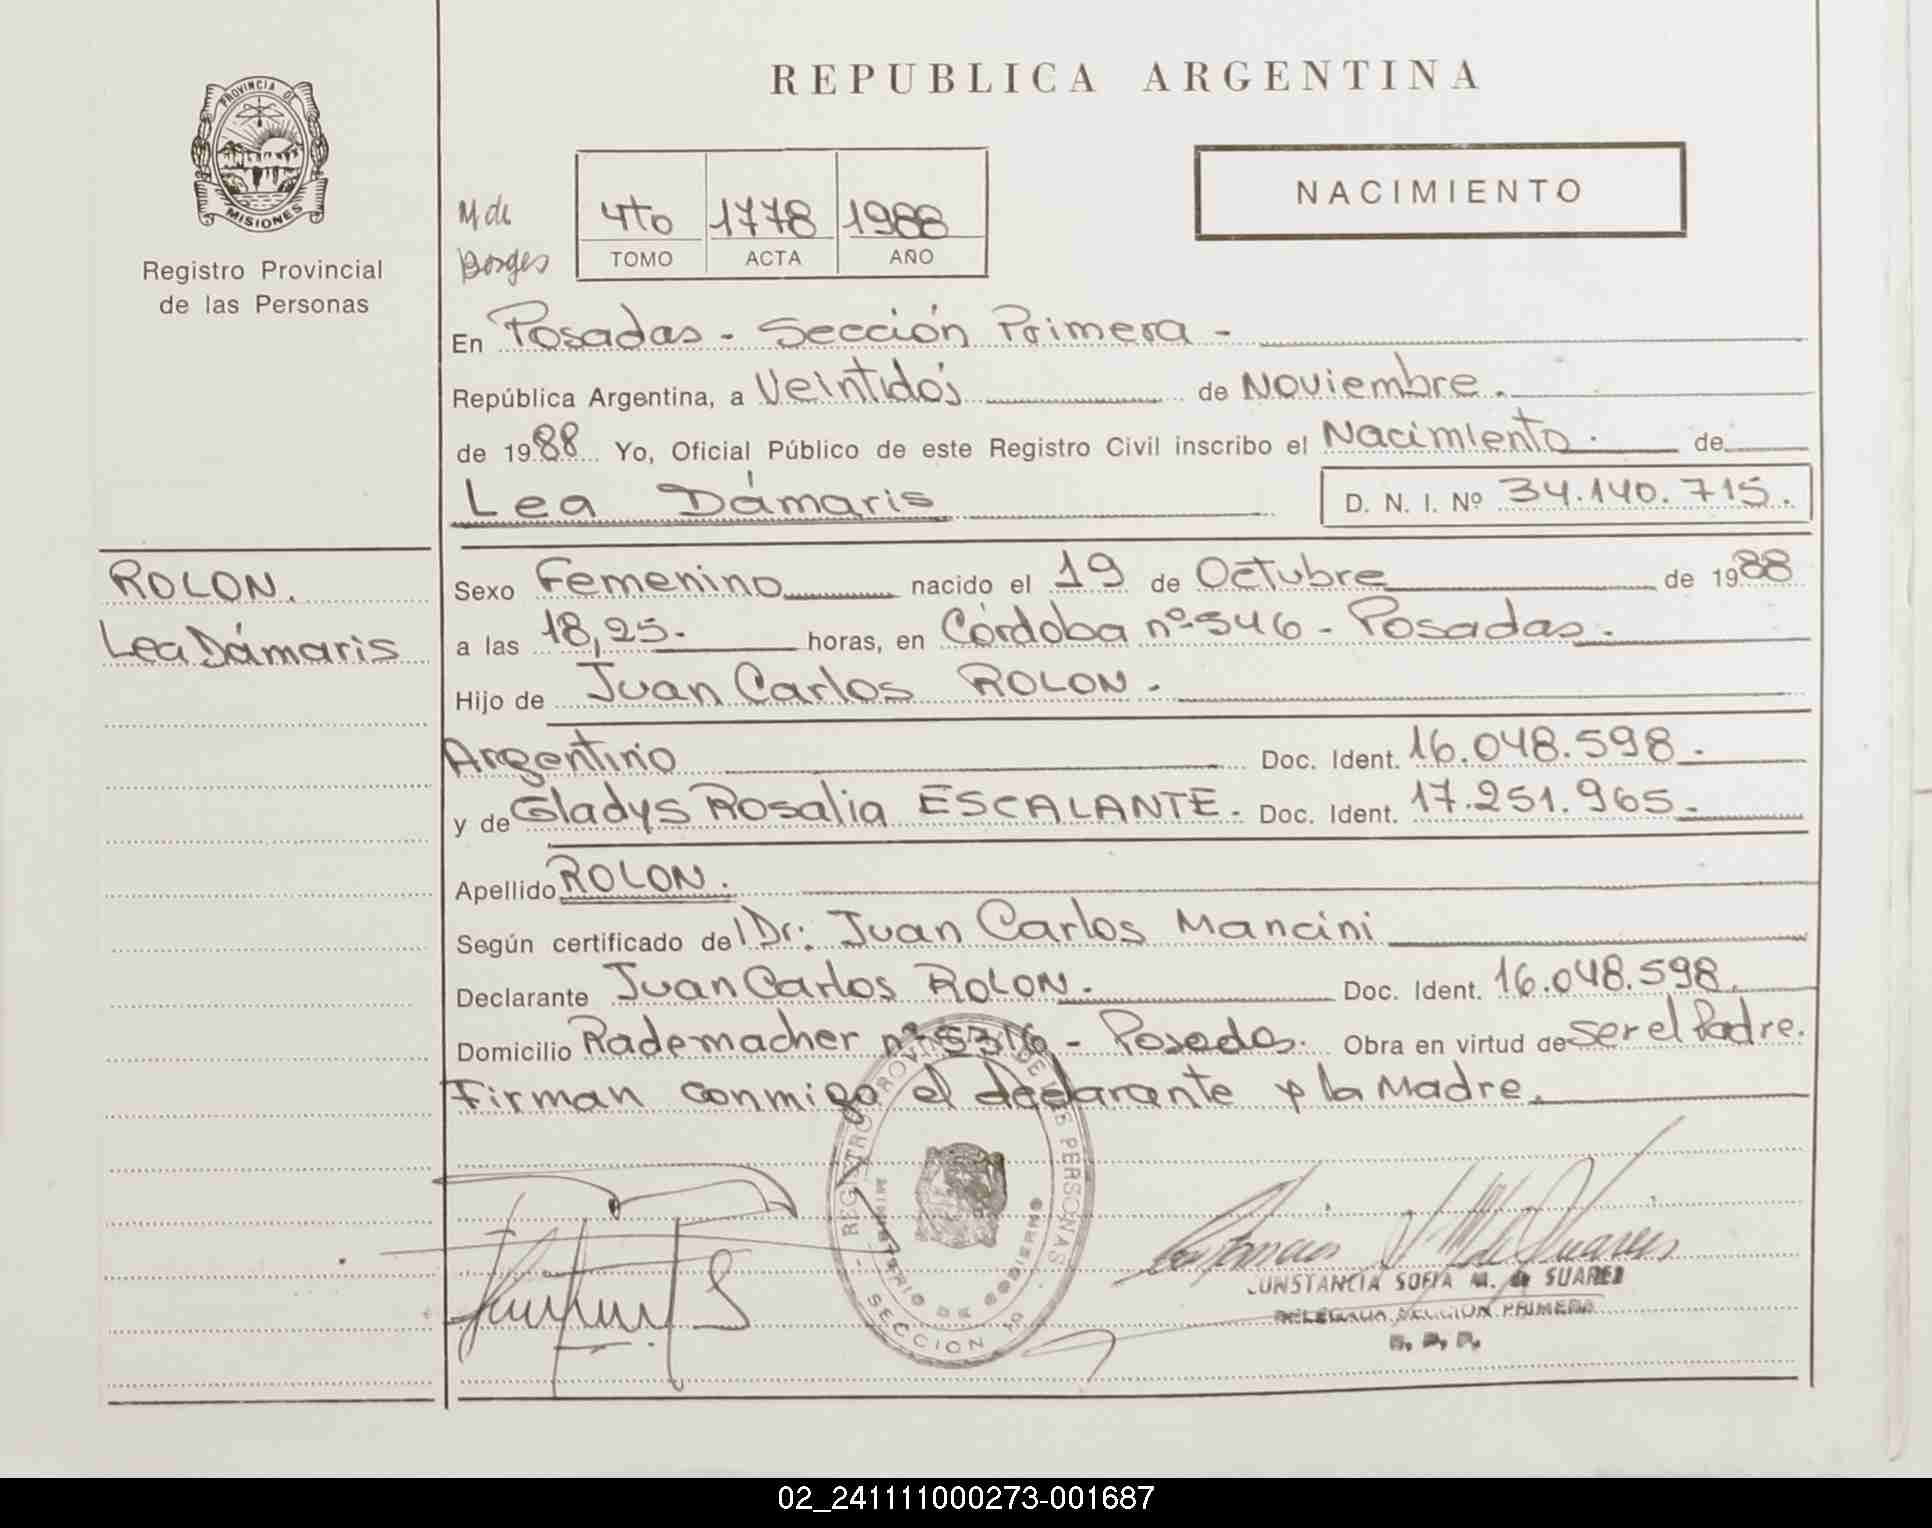 PROVINCIA DE
MISIONES
Registro Provincial
de las Personas
REPUBLICA ARGENTINA
M de
Borges
4to 1778 1988
TOMO ACTA AÑO
NACIMIENTO
En Posadas - Sección Primera -
República Argentina, a Veintidós de Noviembre.
de 1988 Yo, Oficial Público de este Registro Civil inscribo el Nacimiento. de
Lea Dámaris D. N. I. Nº 34.140.715.
ROLON.
Lea Dámaris
Sexo Femenino nacido el 19 de Octubre de 1988
a las 18,25. horas, en Córdoba nº 546 - Posadas.
Hijo de Juan Carlos ROLON.
Argentino Doc. Ident. 16.048.598.
y de Gladys Rosalia ESCALANTE. Doc. Ident. 17.251.965.
Apellido ROLON.
Según certificado del Dr: Juan Carlos Mancini
Declarante Juan Carlos ROLON. Doc. Ident. 16.048.598.
Domicilio Rademacher nº 5316 - Posadas. Obra en virtud de ser el Padre.
Firman conmigo el declarante y la Madre.
REGISTRO PROVINCIAL DE LAS PERSONAS
MINISTERIO DE GOBIERNO
SECCION 1a
CONSTANCIA SOFIA M. de SUAREZ
DELEGADA SECCION PRIMERA
R. P. P.
02_241111000273-001687